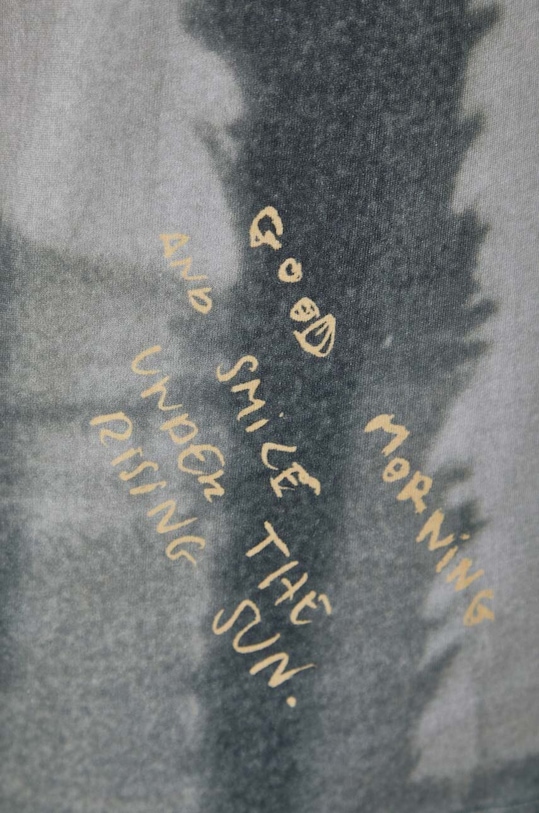 GOOD MORNING
AND SMILE
UNDER THE
RISING SUN.